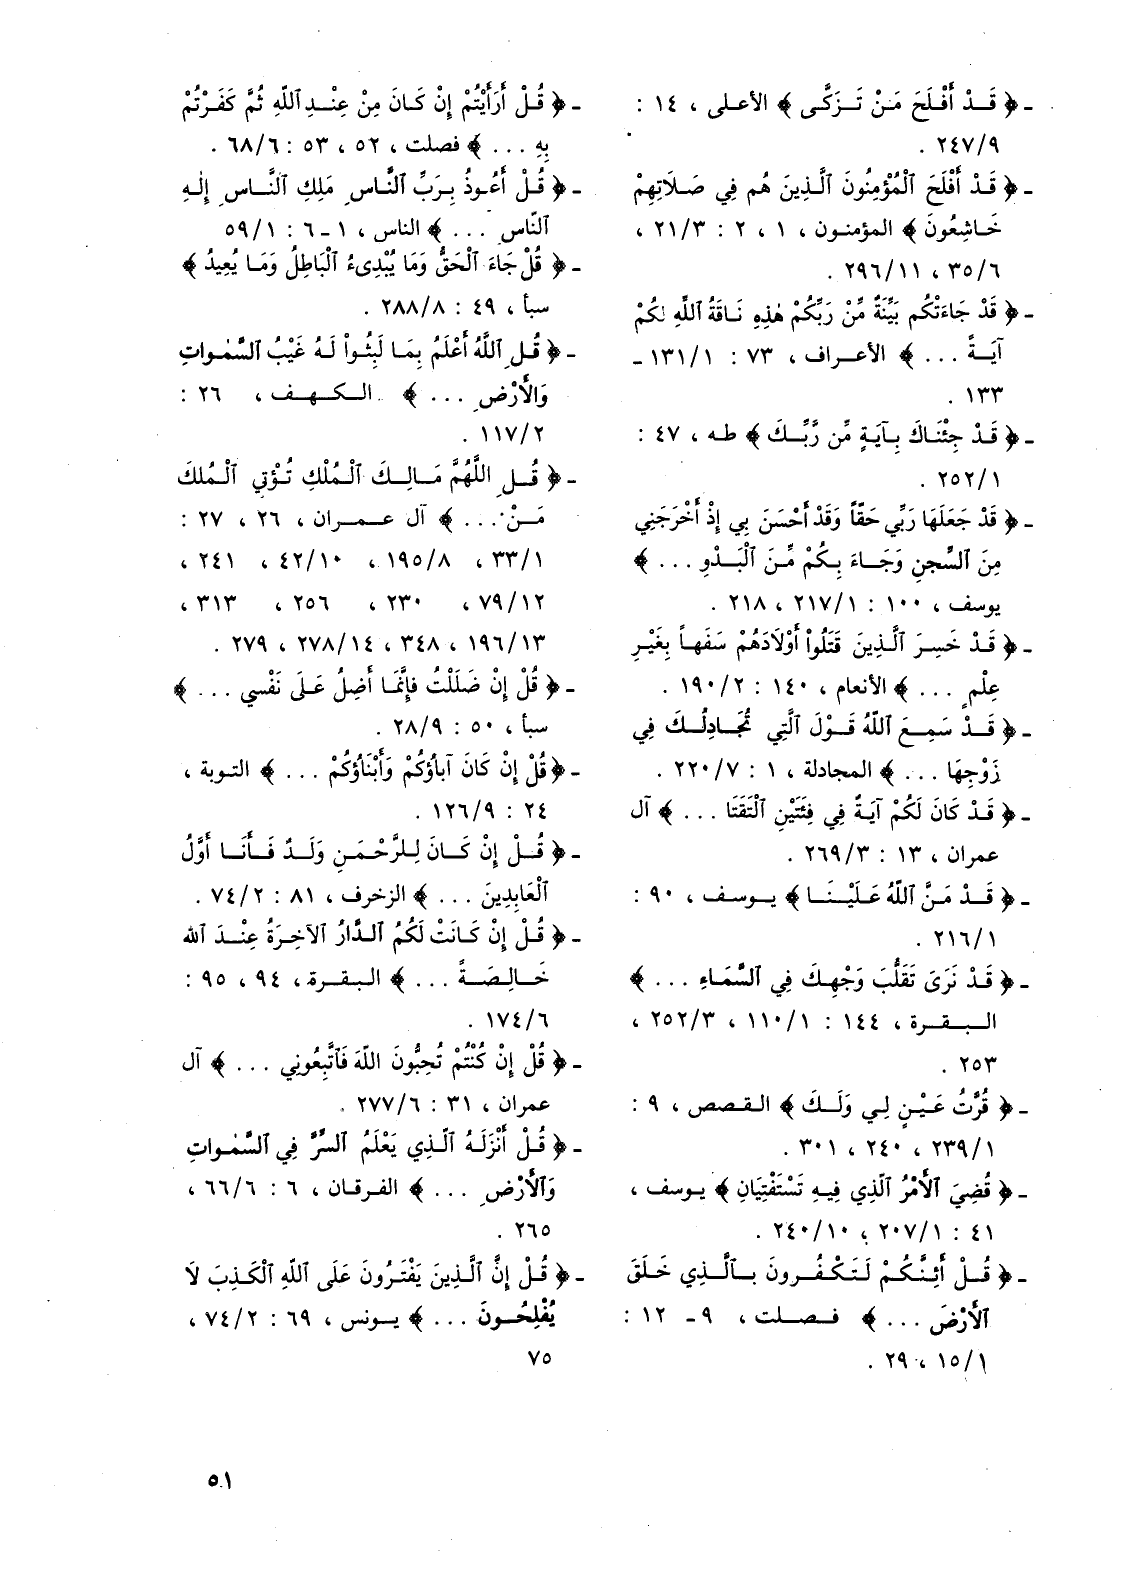 ـ ﴿ قَدْ أَفْلَحَ مَنْ تَزَكَّى ﴾ الأعلى ، ١٤ :
٢٤٧/٩ .
ـ ﴿ قَدْ أَفْلَحَ ٱلْمُؤْمِنُونَ ٱلَّذِينَ هُم فِي صَلَاتِهِمْ
خَاشِعُونَ ﴾ المؤمنون ، ١ ، ٢ : ٢١/٣ ،
٣٥/٦ ، ٢٩٦/١١ .
ـ ﴿ قَدْ جَاءَتْكُم بَيِّنَةٌ مِّنْ رَبِّكُمْ هٰذِهِ نَاقَةُ ٱللَّهِ لكُمْ
آيَةً ... ﴾ الأعراف ، ٧٣ : ١٣١/١ ـ
١٣٣ .
ـ ﴿ قَدْ جِئْنَاكَ بِآيَةٍ مِّن رَّبِّكَ ﴾ طه ، ٤٧ :
٢٥٢/١ .
ـ ﴿ قَدْ جَعَلَهَا رَبِّي حَقّاً وَقَدْ أَحْسَنَ بِي إِذْ أَخْرَجَنِي
مِنَ ٱلسِّجنِ وَجَاءَ بِكُمْ مِّنَ ٱلْبَدْوِ ... ﴾
يوسف ، ١٠٠ : ٢١٧/١ ، ٢١٨ .
ـ ﴿ قَدْ خَسِرَ ٱلَّذِينَ قَتَلُواْ أَوْلَادَهُمْ سَفَهاً بِغَيْرِ
عِلْمٍ ... ﴾ الأنعام ، ١٤٠ : ١٩٠/٢ .
ـ ﴿ قَدْ سَمِعَ ٱللَّهُ قَوْلَ ٱلَّتِي تُجَادِلُكَ فِي
زَوْجِهَا ... ﴾ المجادلة ، ١ : ٢٢٠/٧ .
ـ ﴿ قَدْ كَانَ لَكُمْ آيَةٌ فِي فِئَتَيْنِ ٱلْتَقَتَا ... ﴾ آل
عمران ، ١٣ : ٢٦٩/٣ .
ـ ﴿ قَدْ مَنَّ ٱللَّهُ عَلَيْنَا ﴾ يوسف ، ٩٠ :
٢١٦/١ .
ـ ﴿ قَدْ نَرَى تَقَلُّبَ وَجْهِكَ فِي ٱلسَّمَاءِ ... ﴾
البقرة ، ١٤٤ : ١١٠/١ ، ٢٥٢/٣ ،
٢٥٣ .
ـ ﴿ قُرَّتُ عَيْنٍ لِي وَلَكَ ﴾ القصص ، ٩ :
٢٣٩/١ ، ٢٤٠ ، ٣٠١ .
ـ ﴿ قُضِيَ ٱلْأَمْرُ ٱلَّذِي فِيهِ تَسْتَفْتِيَانِ ﴾ يوسف ،
٤١ : ٢٠٧/١ ، ٢٤٠/١٠ .
ـ ﴿ قُلْ أَئِنَّكُمْ لَتَكْفُرونَ بِٱلَّذِي خَلَقَ
ٱلْأَرْضَ ... ﴾ فصلت ، ٩ـ ١٢ :
١٥/١ ، ٢٩ .
ـ ﴿ قُلْ أَرَأَيْتُمْ إِنْ كَانَ مِنْ عِنْدِ ٱللَّهِ ثُمَّ كَفَرْتُمْ
بِهِ ... ﴾ فصلت ، ٥٢ ، ٥٣ : ٦٨/٦ .
ـ ﴿ قُلْ أَعُوذُ بِرَبِّ ٱلنَّاسِ مَلِكِ ٱلنَّاسِ إِلٰهِ
ٱلنَّاسِ ... ﴾ الناس ، ١ـ ٦ : ٥٩/١
ـ ﴿ قُلْ جَاءَ ٱلْحَقُّ وَمَا يُبْدِىءُ ٱلْبَاطِلُ وَمَا يُعِيدُ ﴾
سبأ ، ٤٩ : ٢٨٨/٨ .
ـ ﴿ قُلِ ٱللَّهُ أَعْلَمُ بِمَا لَبِثُواْ لَهُ غَيْبُ ٱلسَّمٰواتِ
وَالأَرْضِ ... ﴾ الكهف ، ٢٦ :
١١٧/٢ .
ـ ﴿ قُلِ اللَّهُمَّ مَالِكَ ٱلْمُلْكِ تُؤْتِي ٱلْمُلكَ
مَنْ ... ﴾ آل عمران ، ٢٦ ، ٢٧ :
٣٣/١ ، ١٩٥/٨ ، ٤٢/١٠ ، ٢٤١ ،
٧٩/١٢ ، ٢٣٠ ، ٢٥٦ ، ٣١٣ ،
١٩٦/١٣ ، ٣٤٨ ، ٢٧٨/١٤ ، ٢٧٩ .
ـ ﴿ قُلْ إِنْ ضَلَلْتُ فَإِنَّمَا أَضِلُ عَلَى نَفْسِي ... ﴾
سبأ ، ٥٠ : ٢٨/٩ .
ـ ﴿ قُلْ إِنْ كَانَ آباؤكُمْ وَأَبْنَاؤكُمْ ... ﴾ التوبة ،
٢٤ : ١٢٦/٩ .
ـ ﴿ قُلْ إِنْ كَانَ لِلرَّحْمَنِ وَلَدٌ فَأَنَا أَوَّلُ
ٱلْعَابِدِينَ ... ﴾ الزخرف ، ٨١ : ٧٤/٢ .
ـ ﴿ قُلْ إِنْ كَانَتْ لَكُمُ ٱلدَّارُ ٱلآخِرَةُ عِنْدَ ٱلله
خَالِصَةً ... ﴾ البقرة ، ٩٤ ، ٩٥ :
١٧٤/٦ .
ـ ﴿ قُلْ إِنْ كُنْتُمْ تُحِبُّونَ اللَّهَ فَٱتَّبِعُونِي ... ﴾ آل
عمران ، ٣١ : ٢٧٧/٦ .
ـ ﴿ قُلْ أَنْزَلَهُ ٱلَّذِي يَعْلَمُ ٱلسِّرَّ فِي ٱلسَّمٰواتِ
وَٱلْأَرْضِ ... ﴾ الفرقان ، ٦ : ٦٦/٦ ،
٢٦٥ .
ـ ﴿ قُلْ إِنَّ ٱلَّذِينَ يَفْتَرُونَ عَلَى ٱللَّهِ ٱلْكَذِبَ لَا
يُفْلِحُونَ ... ﴾ يونس ، ٦٩ : ٧٤/٢ ،
٧٥
٥١